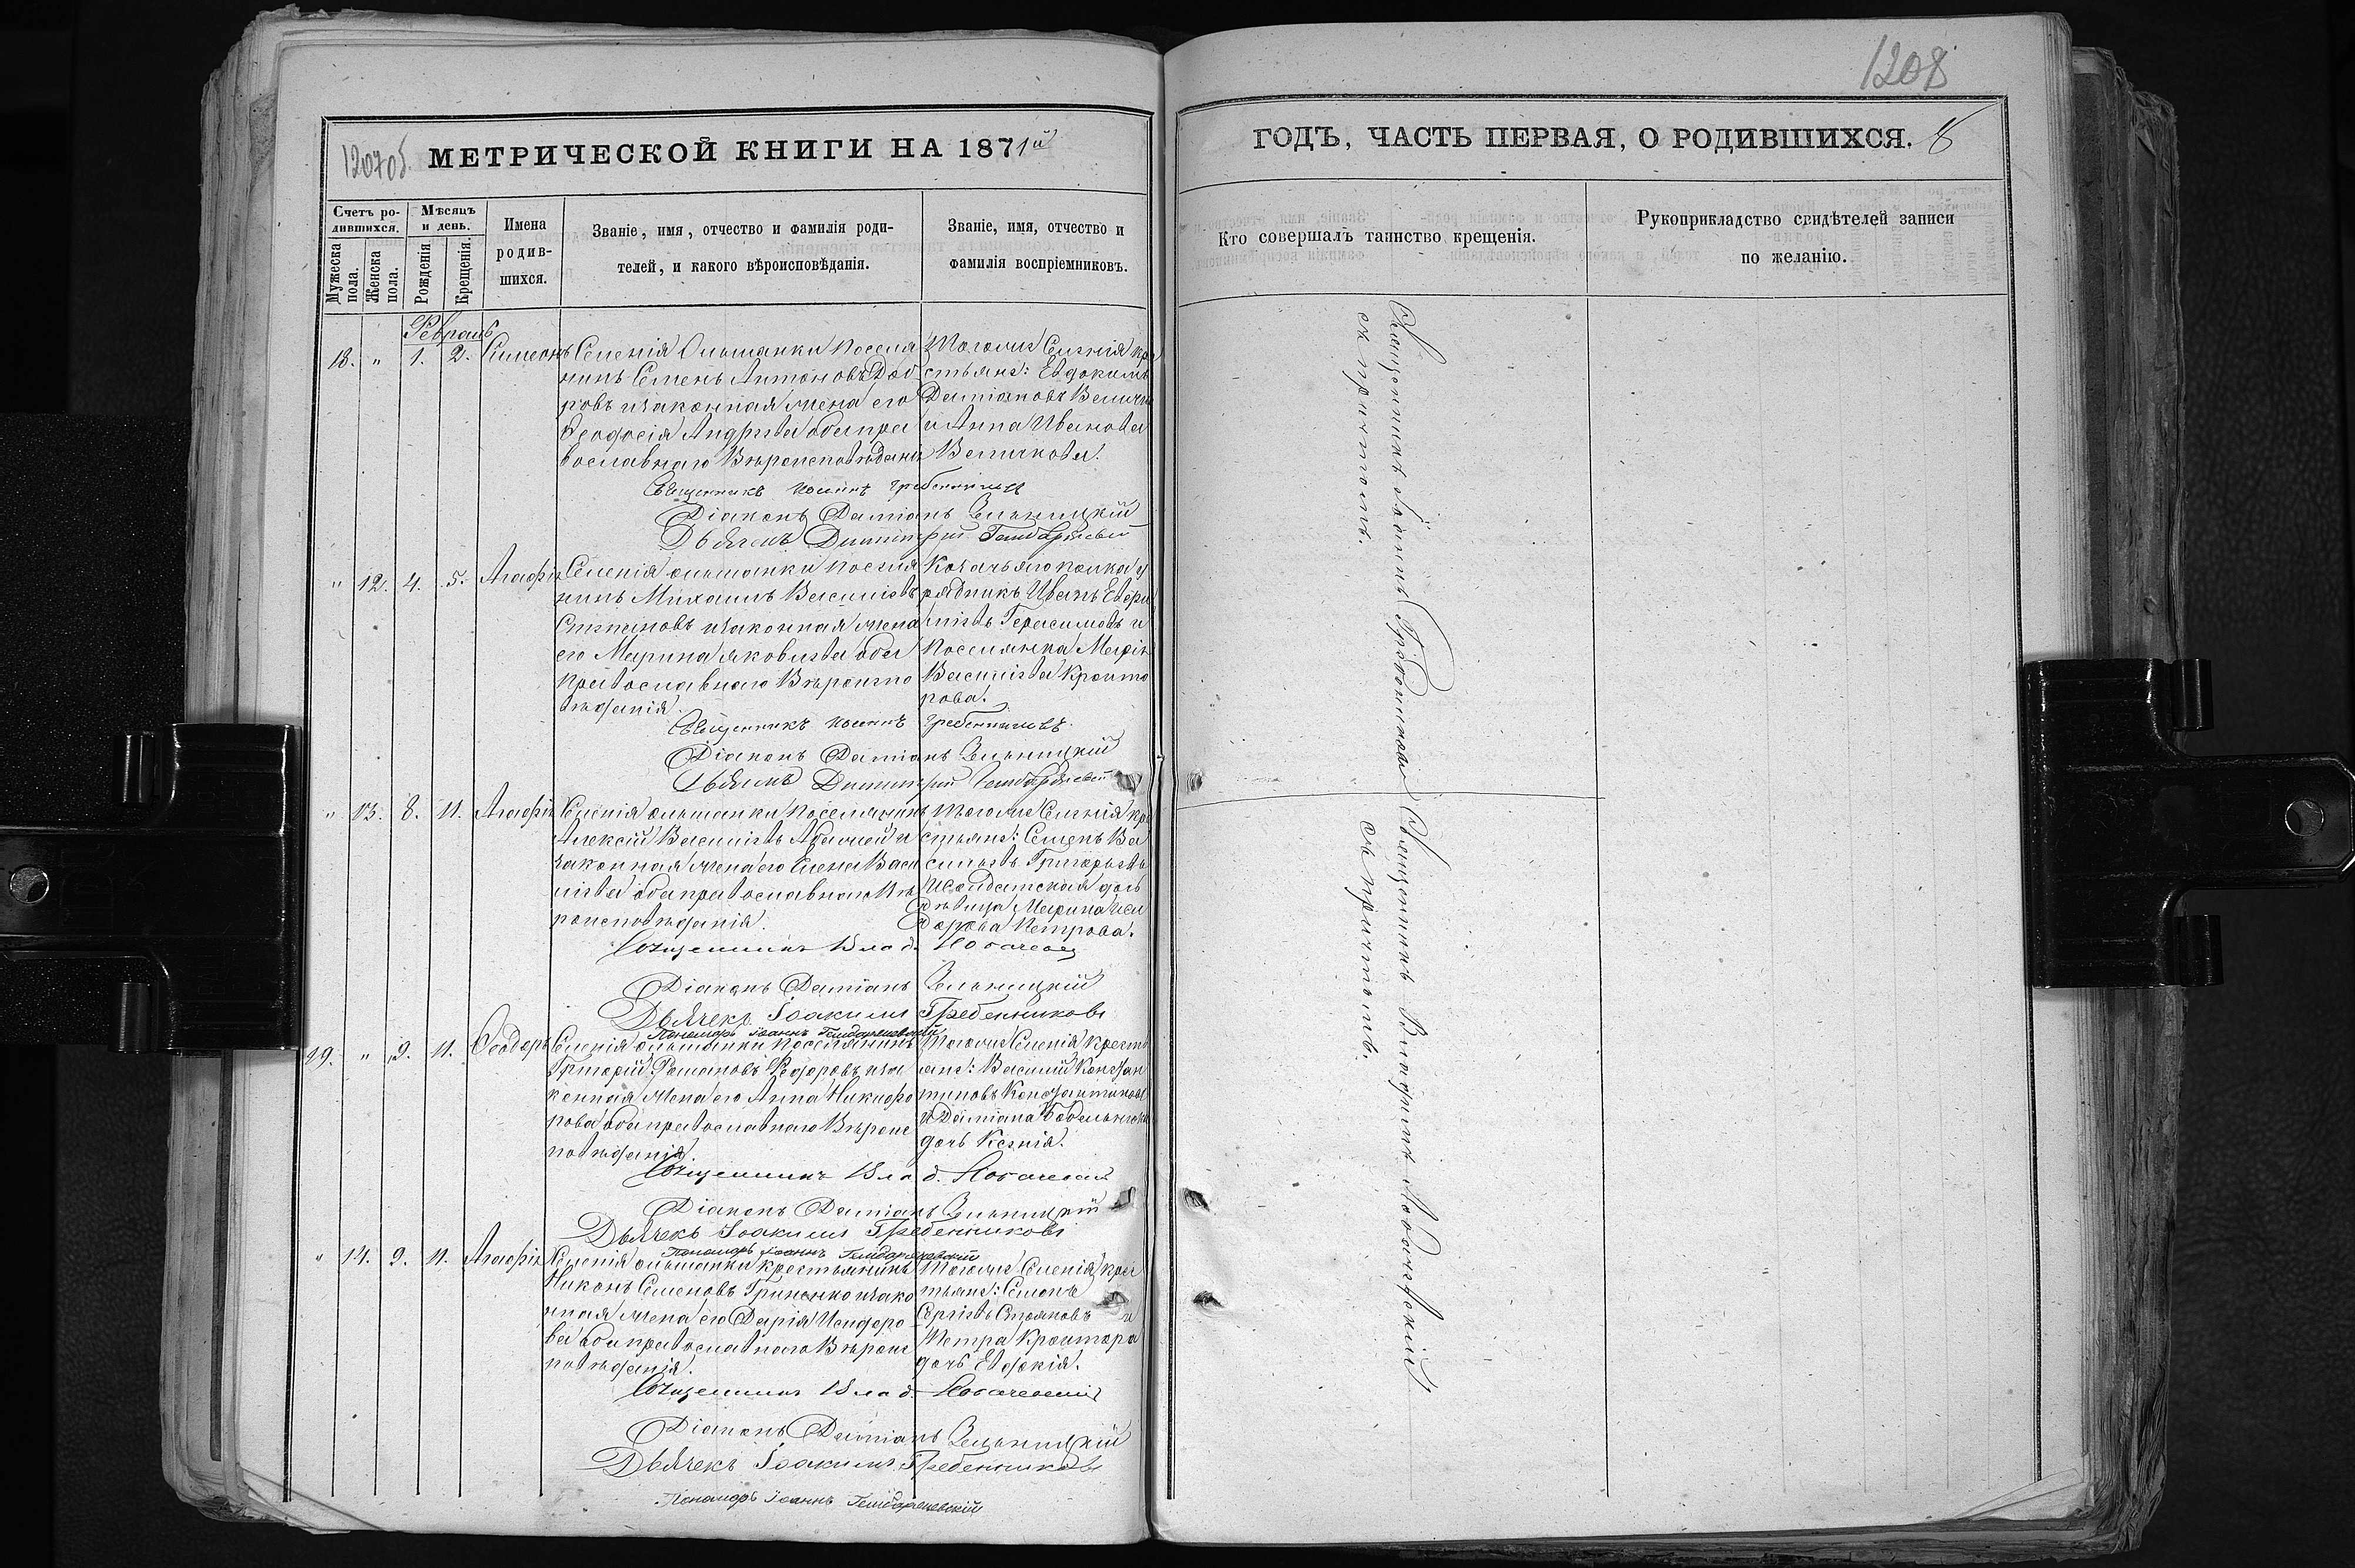 1207об.
МЕТРИЧЕСКОЙ КНИГИ НА 1871й
Счетъ ро-
дившихся.
Мужеска
пола.
Женска
пола.
Мѣсяцъ
и день.
Рожденія
Крещенія.
Имена
родив-
шихся.
Званіе, имя, отчество и фамилія роди-
телей, и какого вѣроисповѣданія.
Званіе, имя, отчество и
фамилія воспріемниковъ.
Февраль
18. " 1. 2. Симеонъ
Селенія Ольшанки поселя
нинъ Семенъ Антоновъ
ровъ изаконная жена его
Феодосія Андреева оба пра
вославнаго Вѣроисповѣданія
Тогоже Селенія кре
стьяне: Евдокимъ
Даміановъ
и Анна Иванова
Величкова.
Священникъ Іоаннъ Гребенниковъ
Діаконъ Даміанъ Зельницкій
Дьячекъ Димитрій
" 12. 4. 5. Агафія
Селенія ольшанки поселя
нинъ Михаилъ Василіевъ
Степановъ изаконная жена
его Марина яковлева оба
православнаго Вѣроиспо
вѣданія.
Козачьяго полка у
рядникъ Иванъ Евфи
міевъ Герасимовъ и
поселянка Марія
Василіева Кроито
рова.
Священникъ Іоаннъ Гребенниковъ.
Діаконъ Даміанъ Зельницкій
Дьячекъ Димитрій
" 13. 8. 11. Агафія
Селенія ольшанки поселянинъ
Алексій Василіевъ и
законная жена его Елена Васи
ліева оба православнаго Вѣ
роисповѣданія.
Тогоже Селенія кре
стьяне: Семенъ Ва
сильевъ Григорьевъ
и солдатская дочь
дѣвица Марина Иси
дорова Петрова.
Священникъ Влад. Лобачевскій
Діаконъ Даміанъ Зельницкій
Дьячекъ Іоакимъ Гребенниковъ
Пономарь Іоаннъ
19. " 9. 11. Ѳеодоръ
Селенія ольшанки поселянинъ
Григорій Романовъ Федоровъ иза
конная жена его Анна Никифо
рова оба православнаго Вѣроис
повѣданія.
Тогоже Селенія кресть
яне: Василій Констан
тиновъ Константиновъ
и Даміана
дочь Ксенія.
Священникъ Влад. Лобачевскій
Діаконъ Даміанъ Зельницкій
Дьячекъ Іоакимъ Гребенниковъ
Пономарь Іоаннъ
" 14. 9. 11. Агафія
Селенія ольшанки крестьянинъ
Никонъ Семеновъ Гриненко изако
нная жена его Дарія Исидоро
ва оба православнаго Вѣроис
повѣданія.
Тогоже Селенія крес
тьяне: Семенъ
Сергіевъ Стояновъ и
Петра Кроитора
дочь Евдокія.
Священникъ Влад. Лобачевскій
Діаконъ Даміанъ Зельницкій
Дьячекъ Іоакимъ Гребенниковъ
Пономарь Іоаннъ
1208
ГОДЪ, ЧАСТЬ ПЕРВАЯ, О РОДИВШИХСЯ. 8
Кто совершалъ таинство крещенія.
Рукоприкладство свидѣтелей записи
по желанію.
Священникъ Іоаннъ Гребенниковъ
съ причтомъ.
Священникъ Владиміръ Лобачевскій
съ причтомъ.